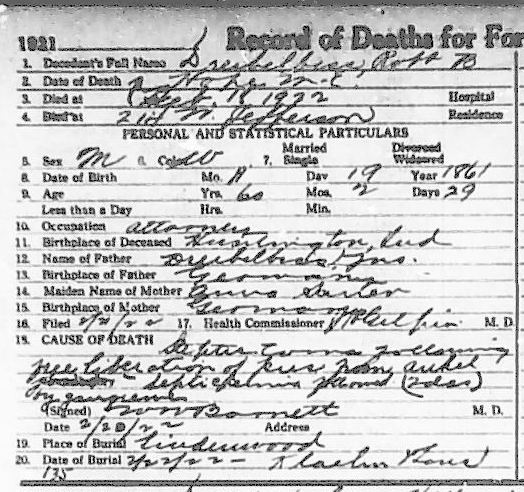 1921 Record of Deaths for For
1. Decedent's Full Name Dreibelbiss, Robt B
2. Date of Death
3. Died at 1922 Hospital
4. Died at 214 W. Jefferson Residence
PERSONAL AND STATISTICAL PARTICULARS
5. Sex M 6. Color W 7. Married Single Divorced Widowed
8. Date of Birth Mo. Day 19 Year 1861
9. Age Yrs. 60 Mos. 2 Days 29
Less than a Day Hrs. Min.
10. Occupation attorney
11. Birthplace of Deceased Huntington, Ind
12. Name of Father Dreibelbiss, Jno.
13. Birthplace of Father Germany
14. Maiden Name of Mother
15. Birthplace of Mother Germany
16. Filed 17. Health Commissioner M. D.
18. CAUSE OF DEATH Septic Coma following
of pus from
Septicaemia followed (2 das)
by gangrene
(Signed) W W Barnett M. D.
Date Address
19. Place of Burial Lindenwood
20. Date of Burial 2/22/22 - Klaehn & Sons